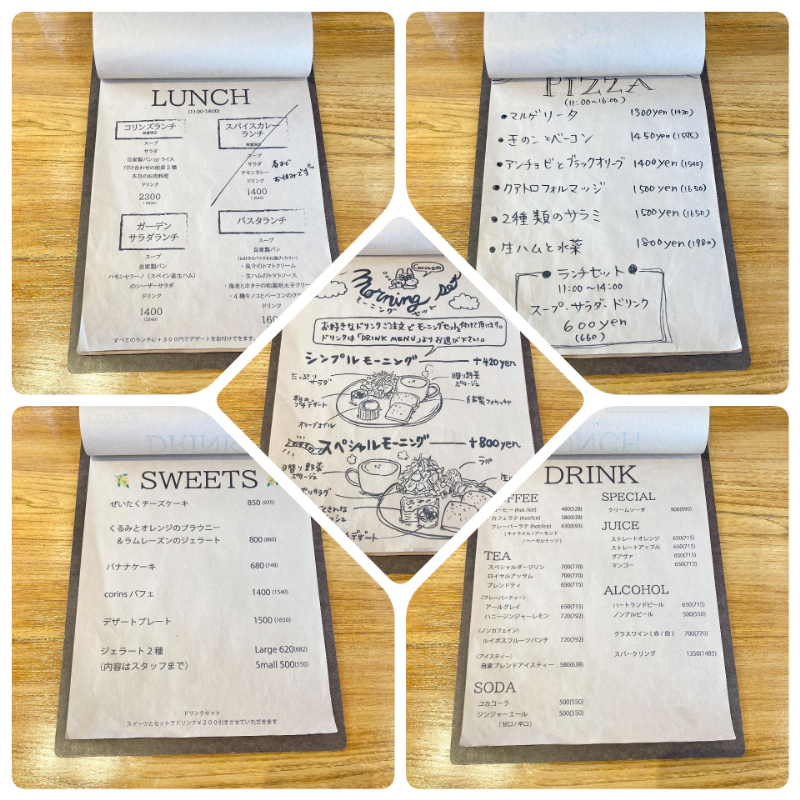 LUNCH
(11:00-14:00)
コリンズランチ
スープ
サラダ
自家製パン or ライス
付け合わせの総菜2種
本日のお肉料理
ドリンク
2300
スパイスカレー
ランチ
スープ
サラダ
チキンカレー
ドリンク
1400
(1540)
春まで
お休みです
ガーデン
サラダランチ
スープ
自家製パン
ハモンセラーノ（スペイン産生ハム）
のシーザーサラダ
ドリンク
1400
(1540)
パスタランチ
スープ
自家製パン
・魚介のトマトクリーム
・生ハムのトマトソース
・海老とホタテの和風明太子クリーム
・4種キノコとベーコンのク
ドリンク
160
すべてのランチに＋300円でデザートをお付けできます
PIZZA
(11:00~16:00)
・マルゲリータ 1300yen (1430)
・きのことベーコン 1450yen (1595)
・アンチョビとブラックオリーブ 1400yen (1540)
・クアトロフォルマッジ 1500yen (1650)
・2種類のサラミ 1500yen (1650)
・生ハムと水菜 1800yen (1980)
・ランチセット・
11:00~14:00
スープ・サラダ・ドリンク
600yen
(660)
Morning set
モーニングセット
お好きなドリンクご注文でモーニングセットを付けて頂けます。
ドリンクは「DRINK MENU」よりお選び下さい。
シンプルモーニング +420yen
たっぷり
サラダ
彩り野菜
ポタージュ
オリーブオイル
自家製フォカッチャ
スペシャルモーニング +800yen
彩り野菜
ポタージュ
デザート
SWEETS
ぜいたくチーズケーキ 850 (935)
くるみとオレンジのブラウニー
＆ラムレーズンのジェラート 800 (880)
バナナケーキ 680 (748)
corins パフェ 1400 (1540)
デザートプレート 1500 (1650)
ジェラート2種 Large 620(682)
（内容はスタッフまで） Small 500(550)
ドリンクセット
スイーツとセットでドリンク￥200引きさせていただきます
DRINK
COFFEE
コーヒー (hot /ice) 480(528)
カフェラテ (hot/ice) 580(638)
フレーバーラテ (hot/ice) 630(693)
(キャラメル / アーモンド
/ ヘーゼルナッツ)
TEA
スペシャルダージリン 700(770)
ロイヤルアッサム 700(770)
ブレンドティ 650(715)
（フレーバーティー）
アールグレイ 650(715)
ハニージンジャーレモン 720(792)
（ノンカフェイン）
ルイボスフルーツパンチ 720(792)
（アイスティー）
自家ブレンドアイスティー 580(638)
SODA
コカコーラ 500(550)
ジンジャーエール 500(550)
(甘口 / 辛口)
SPECIAL
クリームソーダ 900(990)
JUICE
ストレートオレンジ 650(715)
ストレートアップル 650(715)
グアヴァ 650(715)
マンゴー 650(715)
ALCOHOL
ハートランドビール 650(715)
ノンアルビール 500(550)
グラスワイン ( 赤 / 白 ) 700(770)
スパークリング 1350(1485)